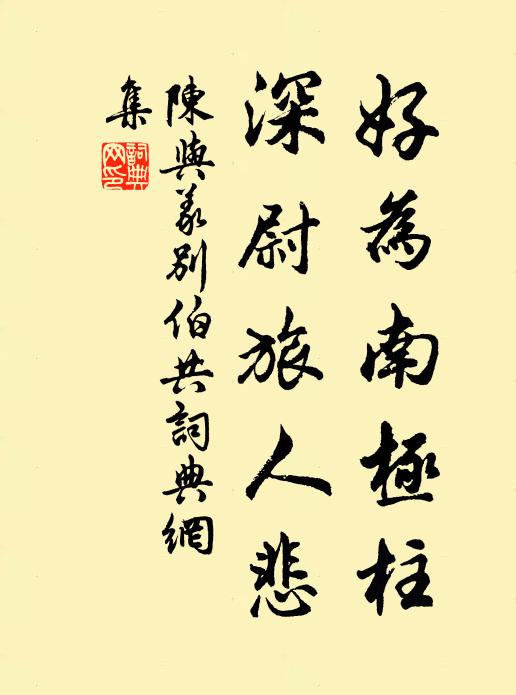 好為南極柱
深尉旅人悲
陳與義別伯共詞典網
集
詞典網印